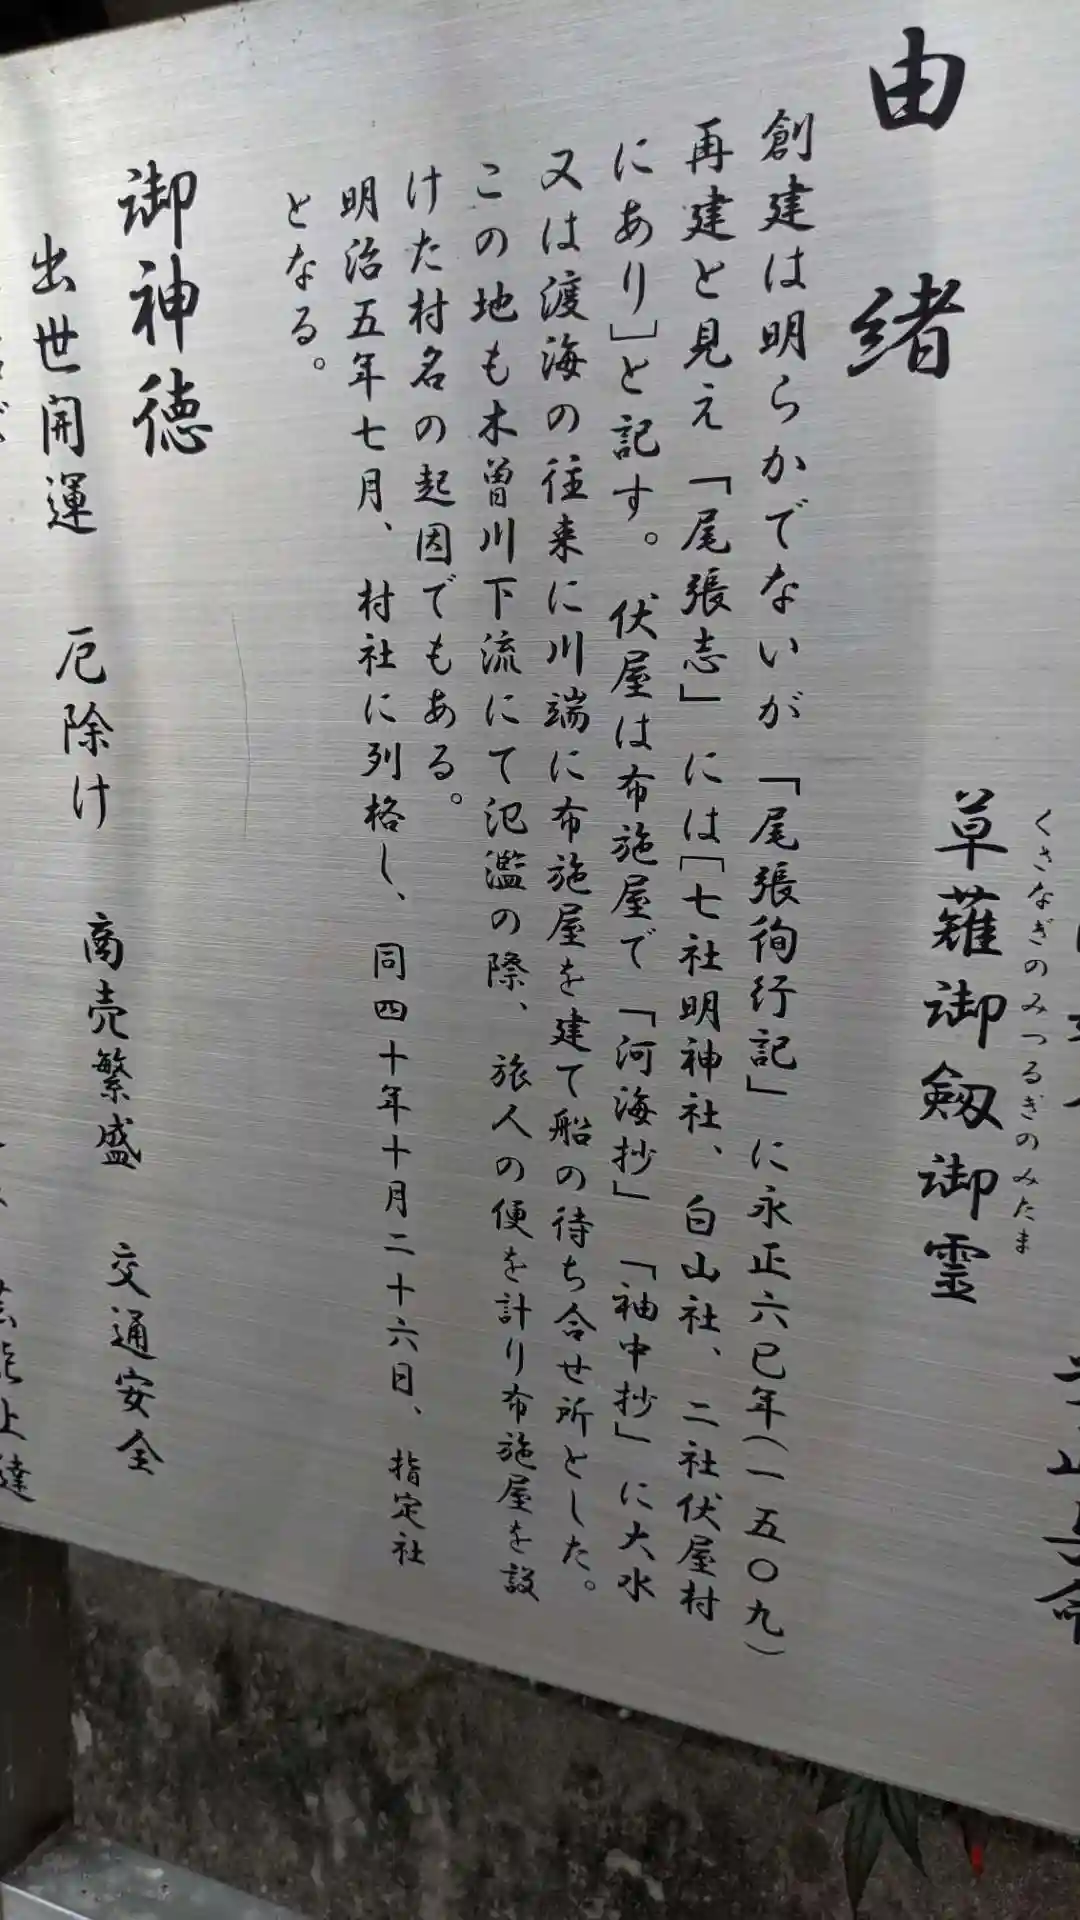 くさなぎのみつるぎのみたま
草薙御剱御霊
由緒
創建は明らかでないが「尾張徇行記」に永正六巳年(一五〇九)
再建と見え「尾張志」には「七社明神社、白山社、二社伏屋村
にあり」と記す。伏屋は布施屋で「河海抄」「袖中抄」に大水
又は渡海の往来に川端に布施屋を建て船の待ち合せ所とした。
この地も木曽川下流にて氾濫の際、旅人の便を計り布施屋を設
けた村名の起因でもある。
明治五年七月、村社に列格し、同四十年十月二十六日、指定社
となる。
御神徳
出世開運 厄除け 商売繁盛 交通安全
芸能上達